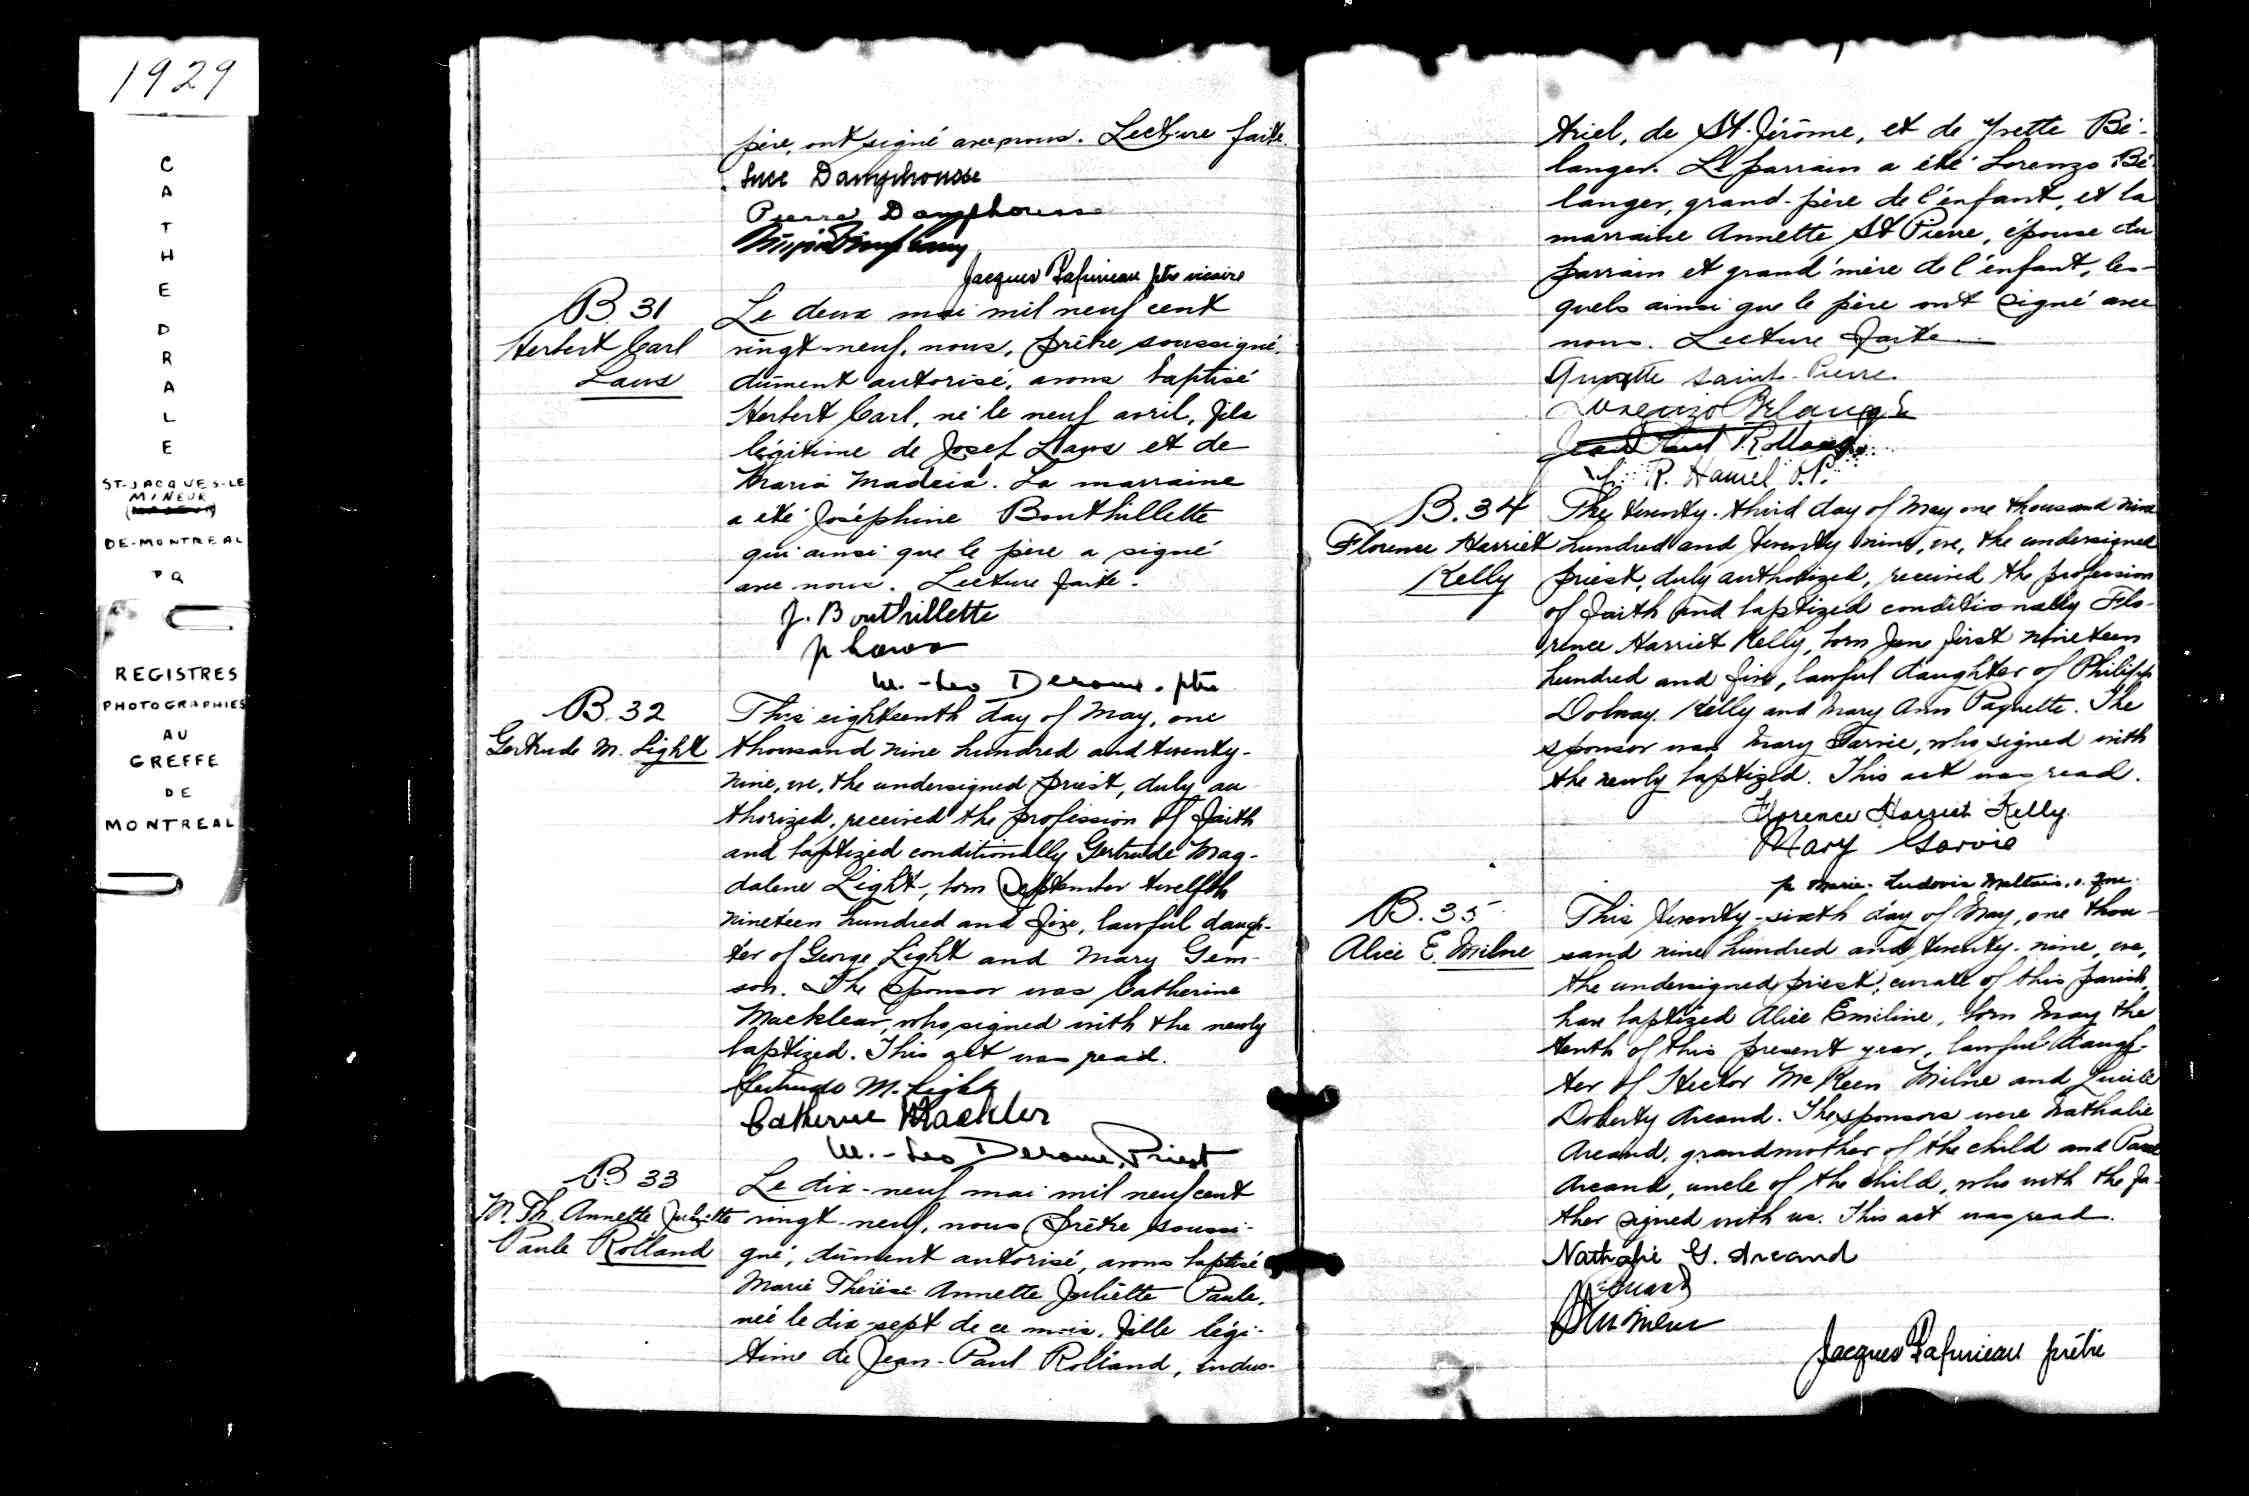 1929
CATHEDRALE
ST-JACQUES-LE
MINEUR
DE-MONTREAL
PQ
REGISTRES
PHOTOGRAPHIES
AU
GREFFE
DE
MONTREAL
père, ont signé avec nous. Lecture faite.
Luce Damphousse
Pierre Damphousse
Jacques Papineau ptre vicaire
B. 31
Herbert Carl
Laws
Le deux mai mil neuf cent
vingt-neuf, nous, prêtre soussigné,
dûment autorisé, avons baptisé
Herbert Carl, né le neuf avril, fils
légitime de Josef Laws et de
Maria Madeia. La marraine
a été Joséphine Bouthillette
qui ainsi que le père a signé
avec nous. Lecture faite.
J. Bouthillette
M.-Leo Derome, ptre
B. 32
Gertrude M. Light
This eighteenth day of May, one
thousand nine hundred and twenty-
nine, we, the undersigned priest, duly au
thorized, received the profession of faith
and baptized conditionally Gertrude Mag-
dalene Light, born September twelfth
nineteen hundred and five, lawful daugh-
ter of George Light and Mary Gem-
son. The sponsor was Catherine
Macklear, who signed with the newly
baptized. This act was read.
Gertrude M. Light
Catherine Mackler
M.-Leo Derome, Priest
B 33
M. Th. Annette Juliette
Paule Rolland
Le dix-neuf mai mil neuf cent
vingt-neuf, nous prêtre soussi-
gné, dûment autorisé, avons baptisé
Marie Thérèse Annette Juliette Paule,
née le dix-sept de ce mois, fille légi-
time de Jean-Paul Rolland, indus-
triel, de St-Jérôme, et de Yvette Bé-
langer. Le parrain a été Lorenzo Bé-
langer, grand-père de l'enfant, et la
marraine Annette St Pierre, épouse du
parrain et grand'mère de l'enfant, les-
quels ainsi que le père ont signé avec
nous. Lecture faite
Annette Saint-Pierre
Lorenzo Bélanger
Jean Paul Rolland
R. Hamel O.P.
B. 34
Florence Harriet
Kelly
The twenty-third day of May one thousand nine
hundred and twenty nine, we, the undersigned
priest, duly authorized, received the profession
of faith and baptized conditionally Flo-
rence Harriet Kelly, born June first nineteen
hundred and five, lawful daughter of Philipp
Kelly and Mary Ann Paquette. The
sponsor was Mary Garvie, who signed with
the newly baptized. This act was read.
Florence Harriet Kelly
Mary Garvie
p Marie-Ludovic Maltais
B. 35
Alice E. Milne
This twenty-sixth day of May, one thou-
sand nine hundred and twenty-nine, we,
the undersigned priest, curate of this parish,
have baptized Alice Emeline, born May the
tenth of this present year, lawful daugh-
ter of Hector McKeen Milne and Lucile
Doherty Arcand. The sponsors were Nathalie
Arcand, grandmother of the child and Paul
Arcand, uncle of the child, who with the fa-
ther signed with us. This act was read.
Nathalie G. Arcand
Jacques Papineau prêtre